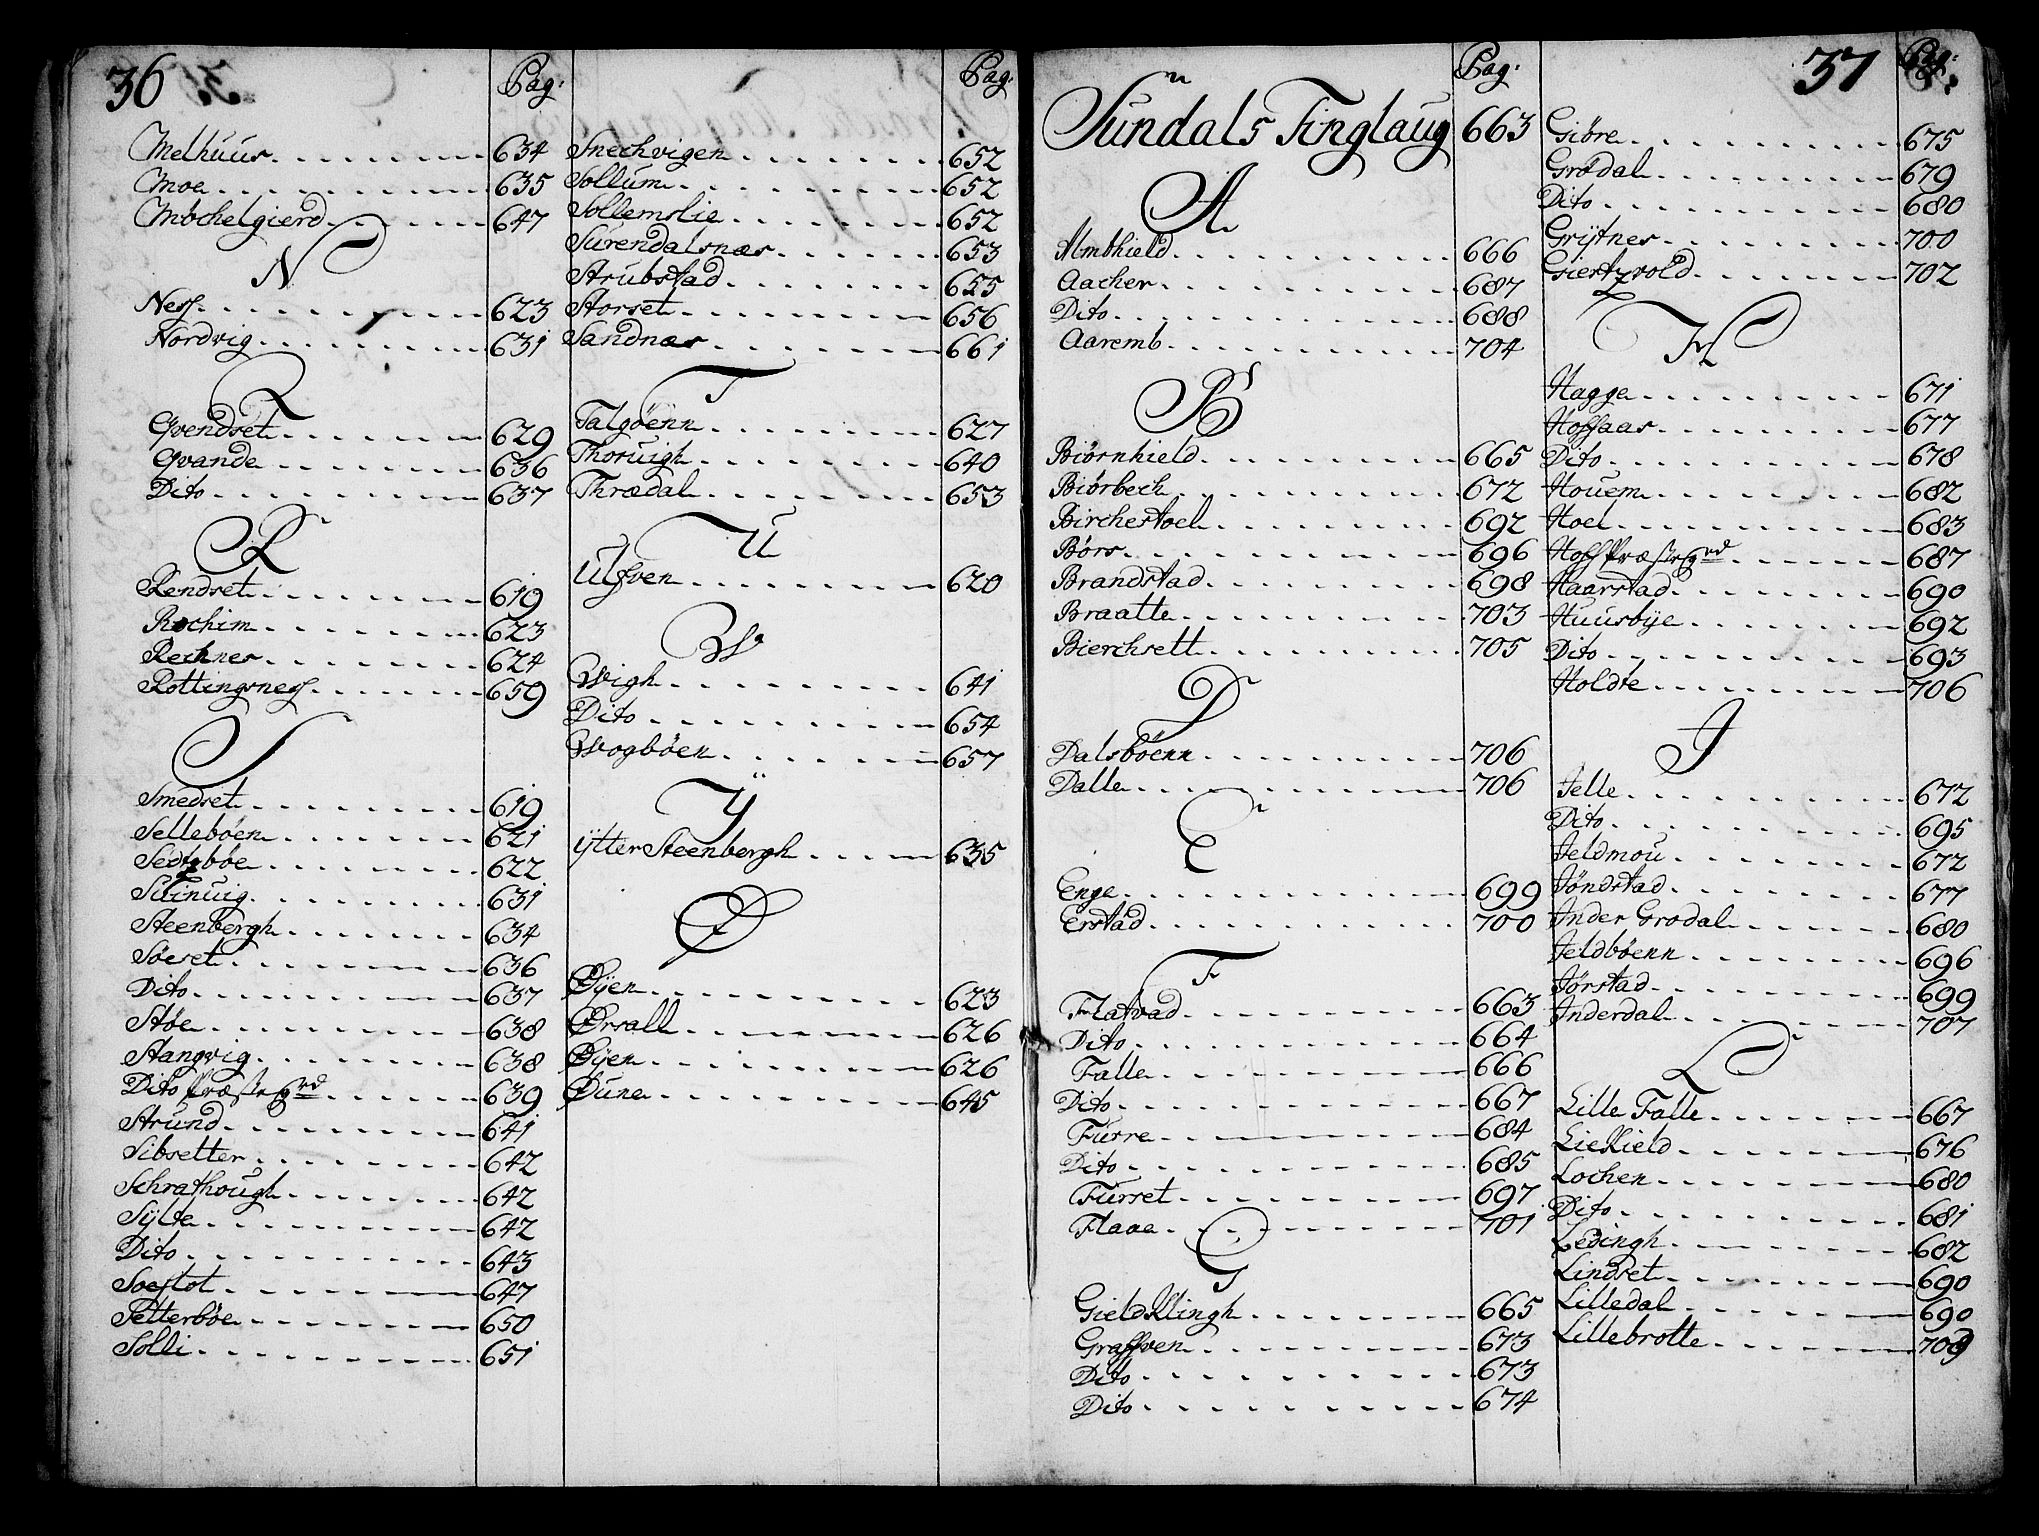 36
Pag:
Melhuus 634
Moe 635
Møchelgierd 647
N
Ness 623
Nordvig 631
Q
Qvendset 629
Qvande 636
Dito 637
R
Rendset 619
Rochim 623
Rechnes 624
Rottingsness 659
S
Smedset 619
Sellebøen 621
Settebøe 622
Stinuig 631
Steenbergh 634
Søeset 636
Dito 637
Støe 638
Stangvig 638
Dito Præstegrd 639
Strund 641
Sibsetter 642
Schrathough 642
Sylte 642
Dito 643
Soeflot 647
Setterbøe 650
Solli 651
Pag:
Snechvigen 652
Sollum 652
Sollemslie 652
Surendalsnæs 653
Strubstad 655
Storset 656
Sandnæs 661
T
Talgøenn 627
Thoruigh 640
Thrædal 653
U
Ulfven 620
W
Wigh 641
Dito 654
Wogbøen 657
Ÿ
Ÿtter Steenbergh 635
Ø
Øÿen 623
Ørsall 626
Øÿen 626
Øune 645
37
Pag:
Sundals Tinglaug 663
A
Almbhield 666
Aacher 687
Dito 688
Aaremb 704
B
Biørnhield 665
Biørbech 672
Birchestoel 692
Børs 696
Brandstad 698
Braatte 703
Bierchsett 705
D
Dalsbøenn 706
Dalle 706
E
Enge 699
Erstad 700
F
Flatvad 663
Dito 664
Falle 666
Dito 667
Furre 684
Dito 685
Furset 697
Flaae 701
G
Gieldsllingh 665
Graffven 673
Dito 673
Dito 674
Pag:
Giøre 675
Grødal 679
Dito 680
Grÿtnes 700
Giertzvold 702
H
Hagge 671
Hoffaas 677
Dito 678
Houem 682
Hoel 683
Hoff Præstegrd 687
Haarstad 690
Huusbÿe 692
Dito 693
Holdte 706
J
Jelle 672
Dito 695
Jeldmou 672
Jøndstad 677
Inder Grødal 680
Jeldbøenn 696
Jørstad 699
Inderdal 707
L
Lille Falle 667
Liehield 676
Lochen 680
Dito 681
Ledingh 682
Lindset 690
Lilledal 690
Lillebrotte 709